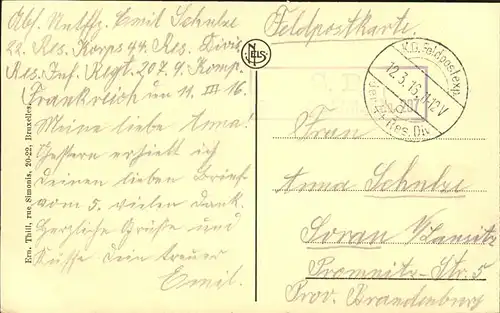 Abs. Untffz. Emil Schulze
22. Res. Korps 44. Res. Divis.
Res. Inf. Regt. 207. 9. Komp.
Frankreich um 11. III 16.
Meine liebe Anna!
Gestern erhielt ich
Deinen lieben Brief
vom 5. vielen Dank.
Herzliche Grüße und
Küsse Dein treuer
Emil.
Ern. Thill, rue Simonis, 20-22, Bruxelles
NELS
Feldpostkarte.
K.D. Feldpostexp.
12.3.16. 11-12 V
44. Res. Div.
207
Frau
Anna Schulze
Soran N/Lausitz
Promnitz-Str. 5
Prov. Brandenburg